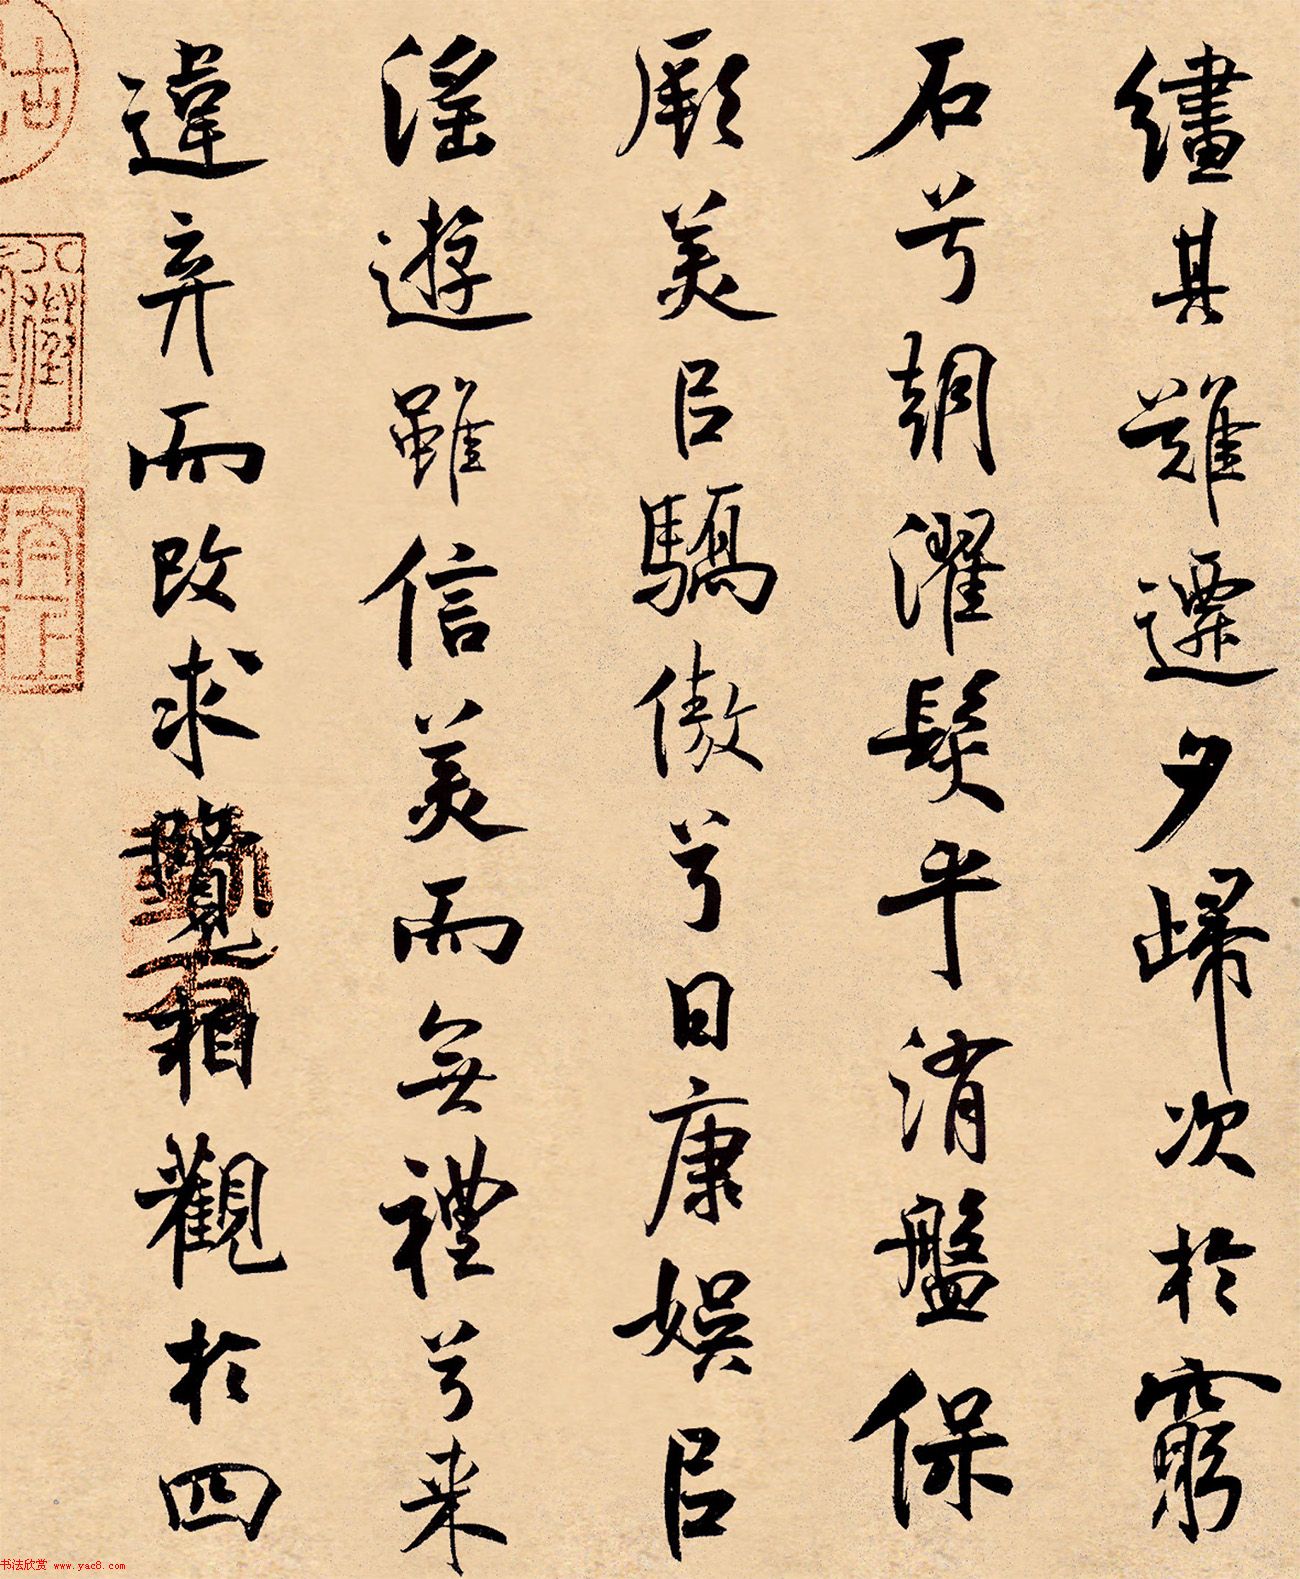 繣其難遷夕歸次於窮
石兮朝濯髮乎洧盤保
厥美㠯驕傲兮日康娛㠯
淫遊雖信美而無禮兮来
違弃而改求覽相觀於四
书法欣赏 www.yac8.com